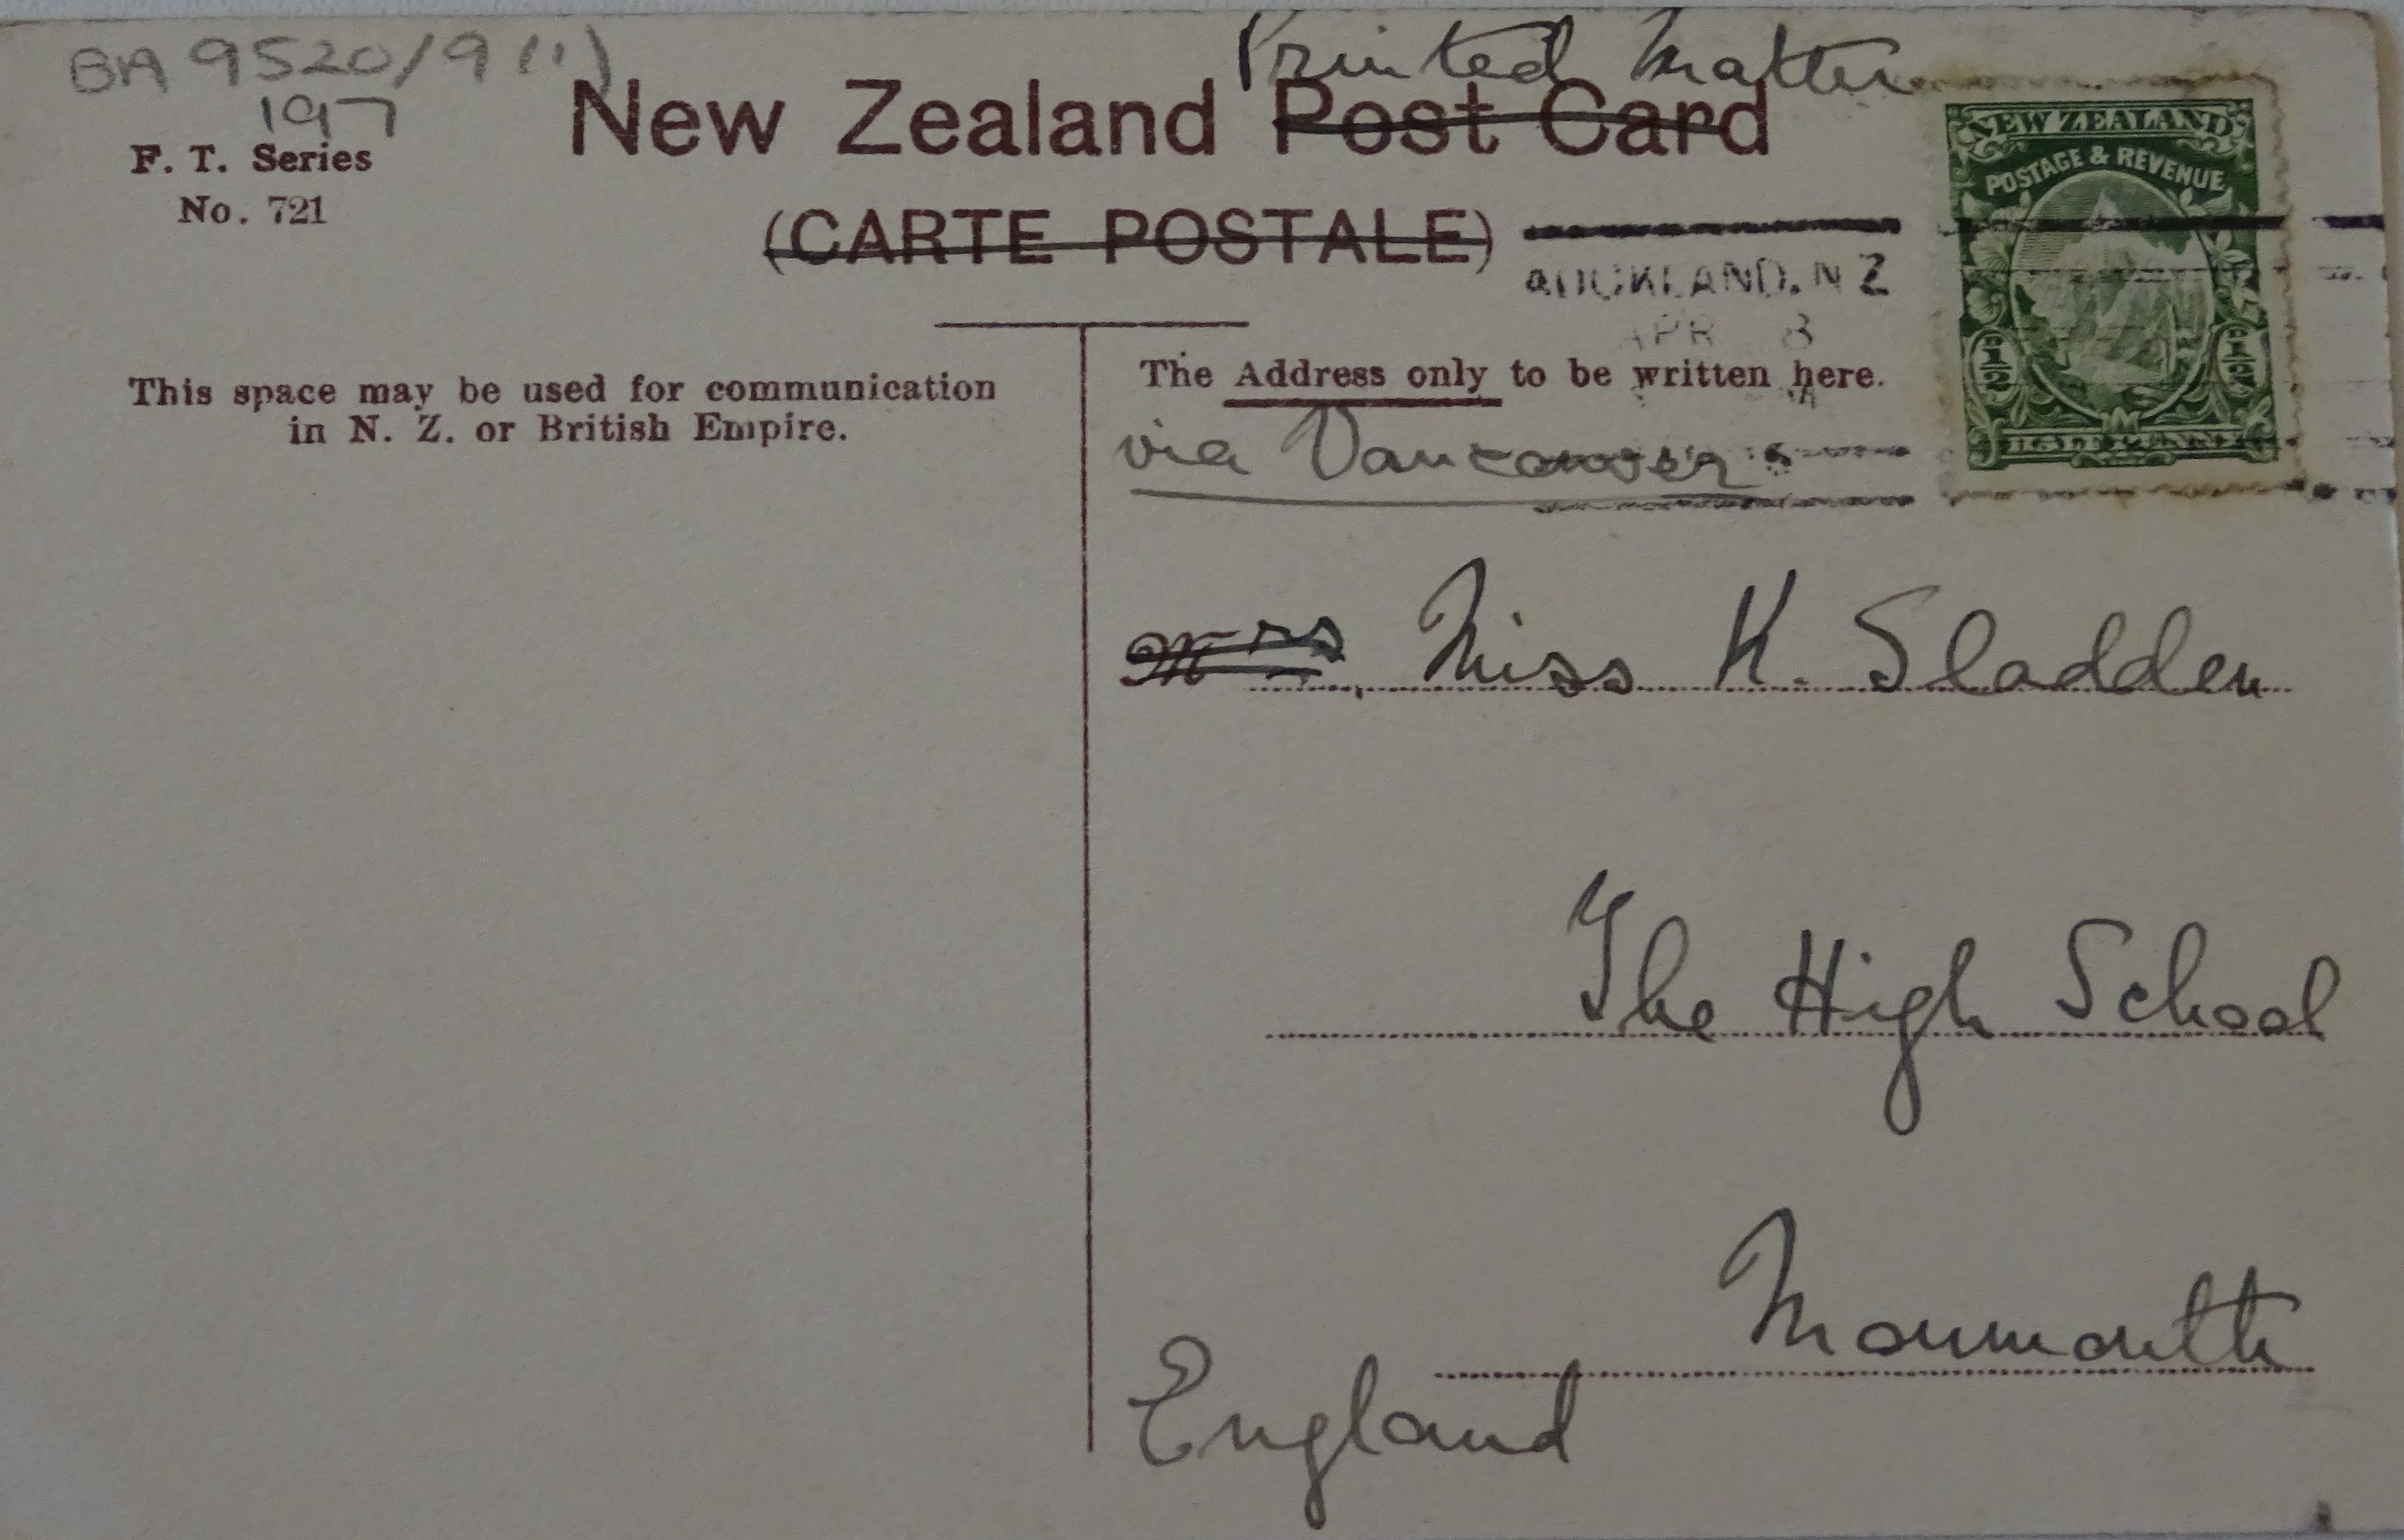 BA 9520/9 (1)
197
Printed Matter
F. T. Series
No. 721
New Zealand Post Card
(CARTE POSTALE)
NEW ZEALAND
POSTAGE & REVENUE
1/2 1/2
AUCKLAND. N Z
APR 8
This space may be used for communication
in N. Z. or British Empire.
The Address only to be written here.
via Vancouver
Mrs Miss K. Sladden
The High School
Monmouth
England